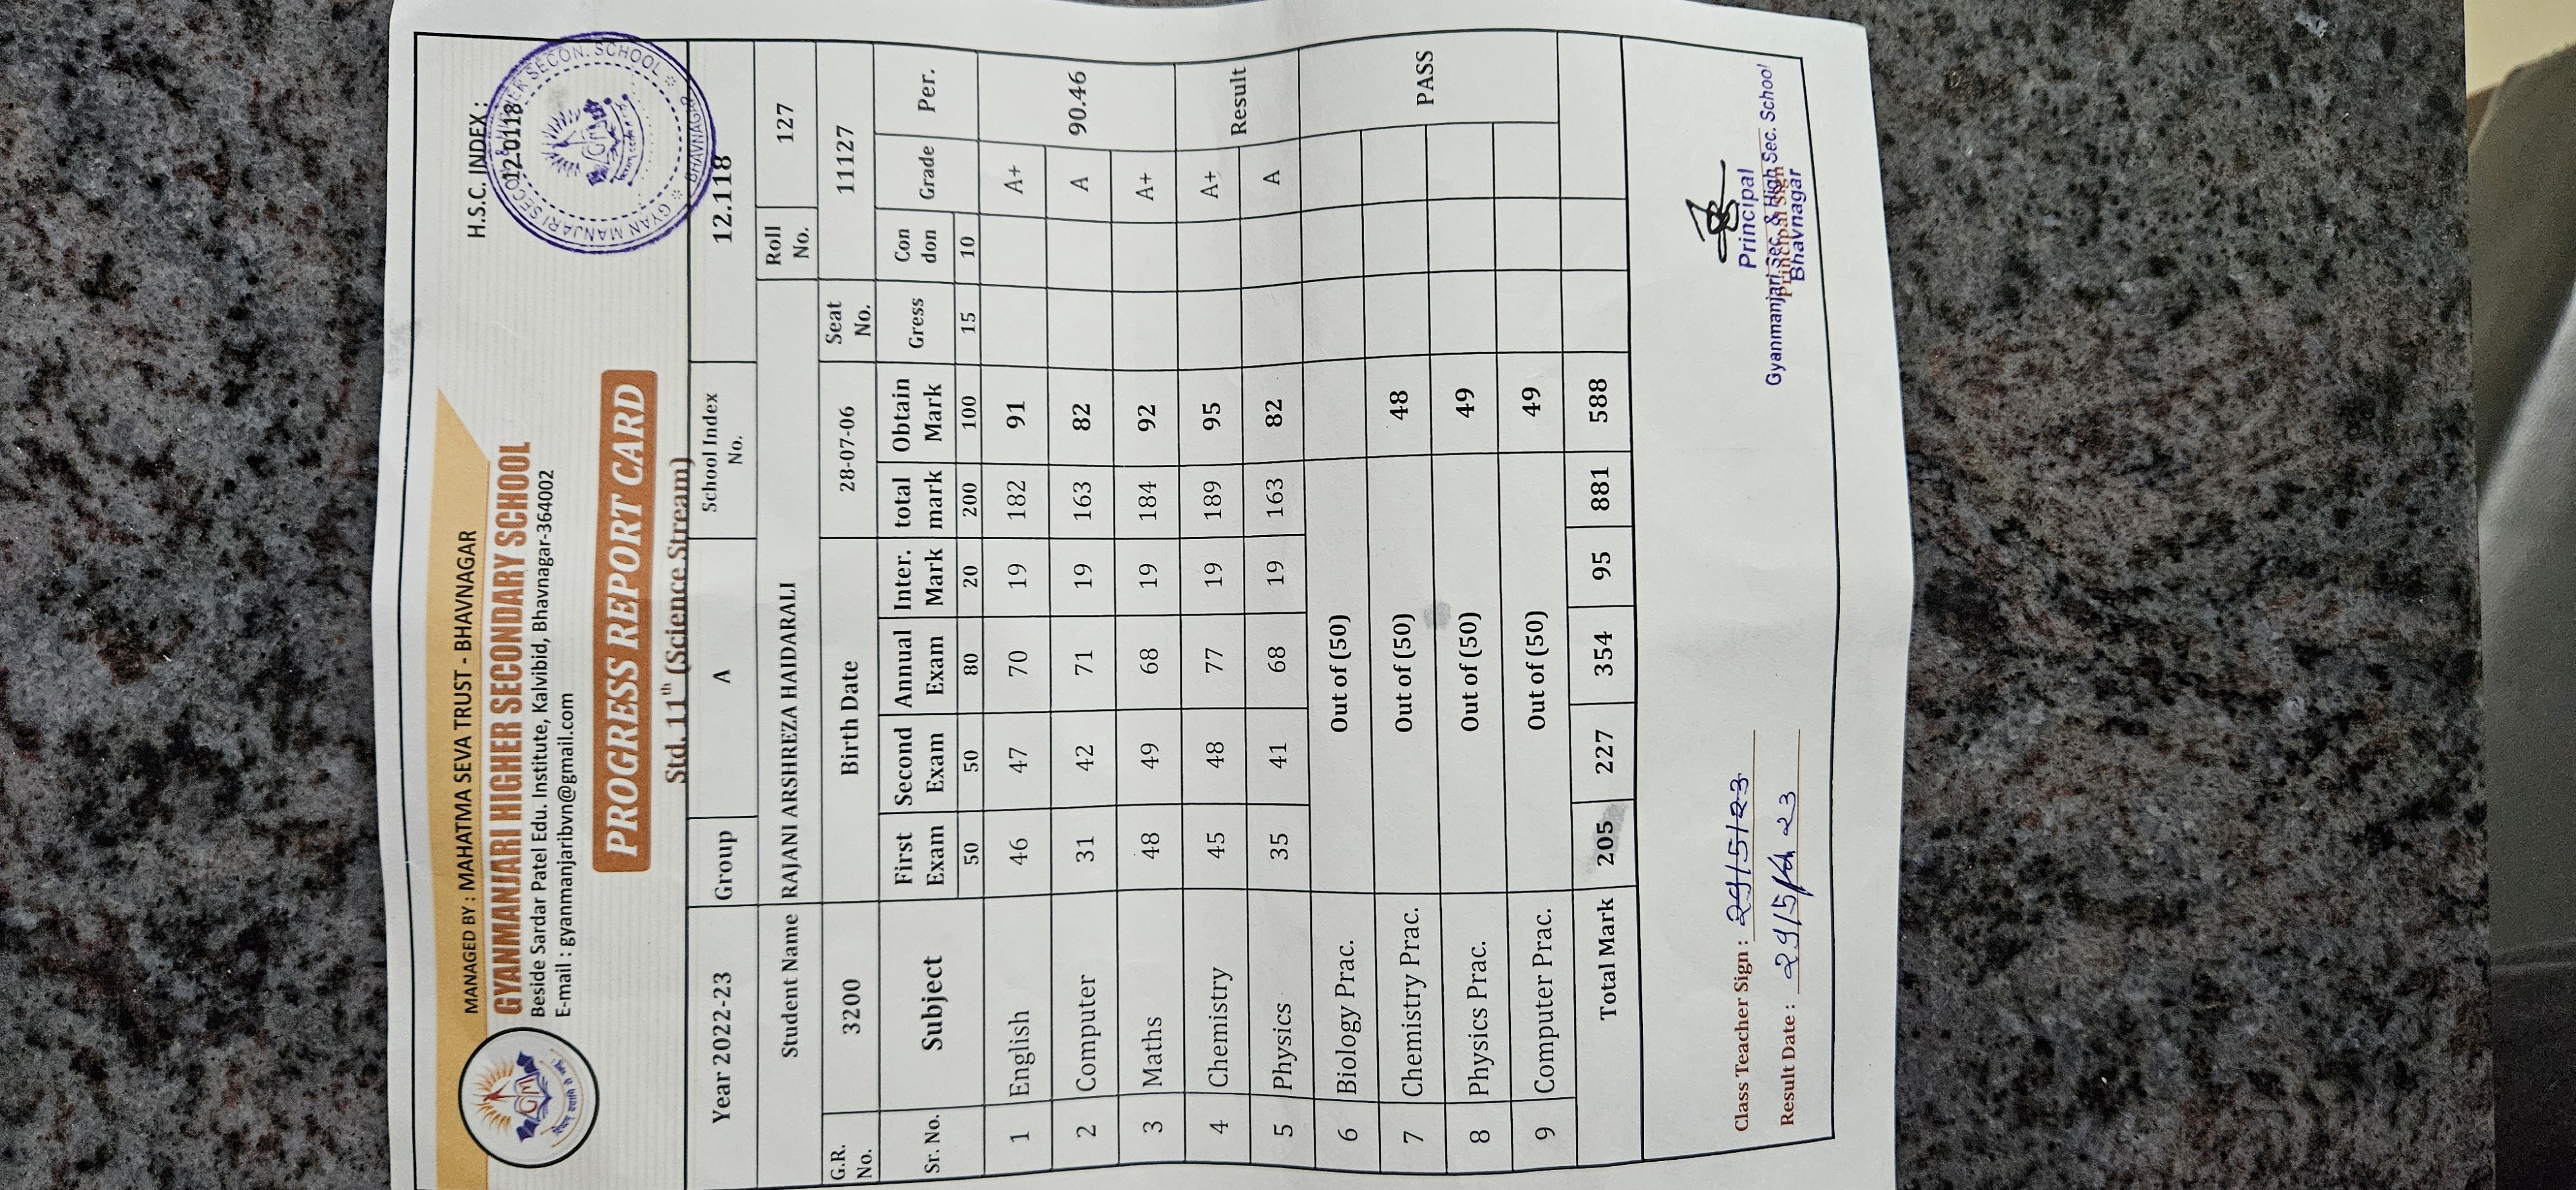 MANAGED BY : MAHATMA SEVA TRUST - BHAVNAGAR
H.S.C. INDEX :
12.0118
GYANMANJARI HIGHER SECONDARY SCHOOL
Beside Sardar Patel Edu. Institute, Kalvibid, Bhavnagar-364002
E-mail : gyanmanjaribvn@gmail.com
GYAN MANJARI SECON. & HIGHER SECON. SCHOOL
BHAVNAGAR
PROGRESS REPORT CARD
Std. 11th (Science Stream)
Year 2022-23 Group A School Index No. 12.118
Student Name RAJANI ARSHREZA HAIDARALI Roll No. 127
G.R. No. 3200 Birth Date 28-07-06 Seat No. 11127
Sr. No. Subject First Exam Second Exam Annual Exam Inter. Mark total mark Obtain Mark Gress Con don Grade Per.
50 50 80 20 200 100 15 10
1 English 46 47 70 19 182 91 A+
2 Computer 31 42 71 19 163 82 A 90.46
3 Maths 48 49 68 19 184 92 A+
4 Chemistry 45 48 77 19 189 95 A+ Result
5 Physics 35 41 68 19 163 82 A
6 Biology Prac. Out of (50)
7 Chemistry Prac. Out of (50) 48 PASS
8 Physics Prac. Out of (50) 49
9 Computer Prac. Out of (50) 49
Total Mark 205 227 354 95 881 588
Class Teacher Sign : 29/5/23
Result Date : 29/5/ 23
Principal
Gyanmanjari Sec. & High Sec. School
Principal Sign
Bhavnagar